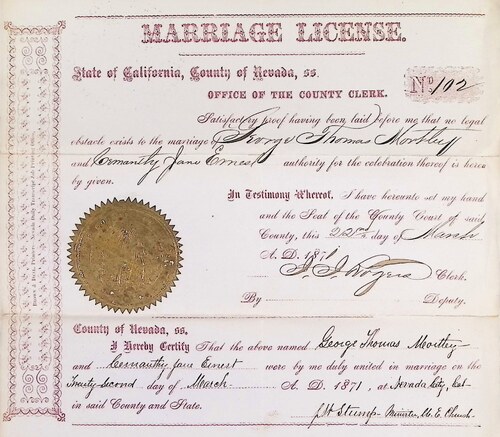 MARRIAGE LICENSE.
State of California, County of Nevada, ss.
OFFICE OF THE COUNTY CLERK.
No. 102
Satisfactory proof having been laid before me that no legal
obstacle exists to the marriage of George Thomas
and Jane Ernest authority for the celebration thereof is hereby
by given.
In Testimony Whereof, I have hereunto set my hand
and the Seal of the County Court of said
County, this 22nd day of March
A. D. 1871
Rogers Clerk.
By Deputy.
County of Nevada, ss.
I Hereby Certify That the above named George Thomas
and Jane Ernest were by me duly united in marriage on the
Twenty Second day of March A. D. 1871, at Nevada City, Cal
in said County and State.
J W Stump Minister, M. E. Church.